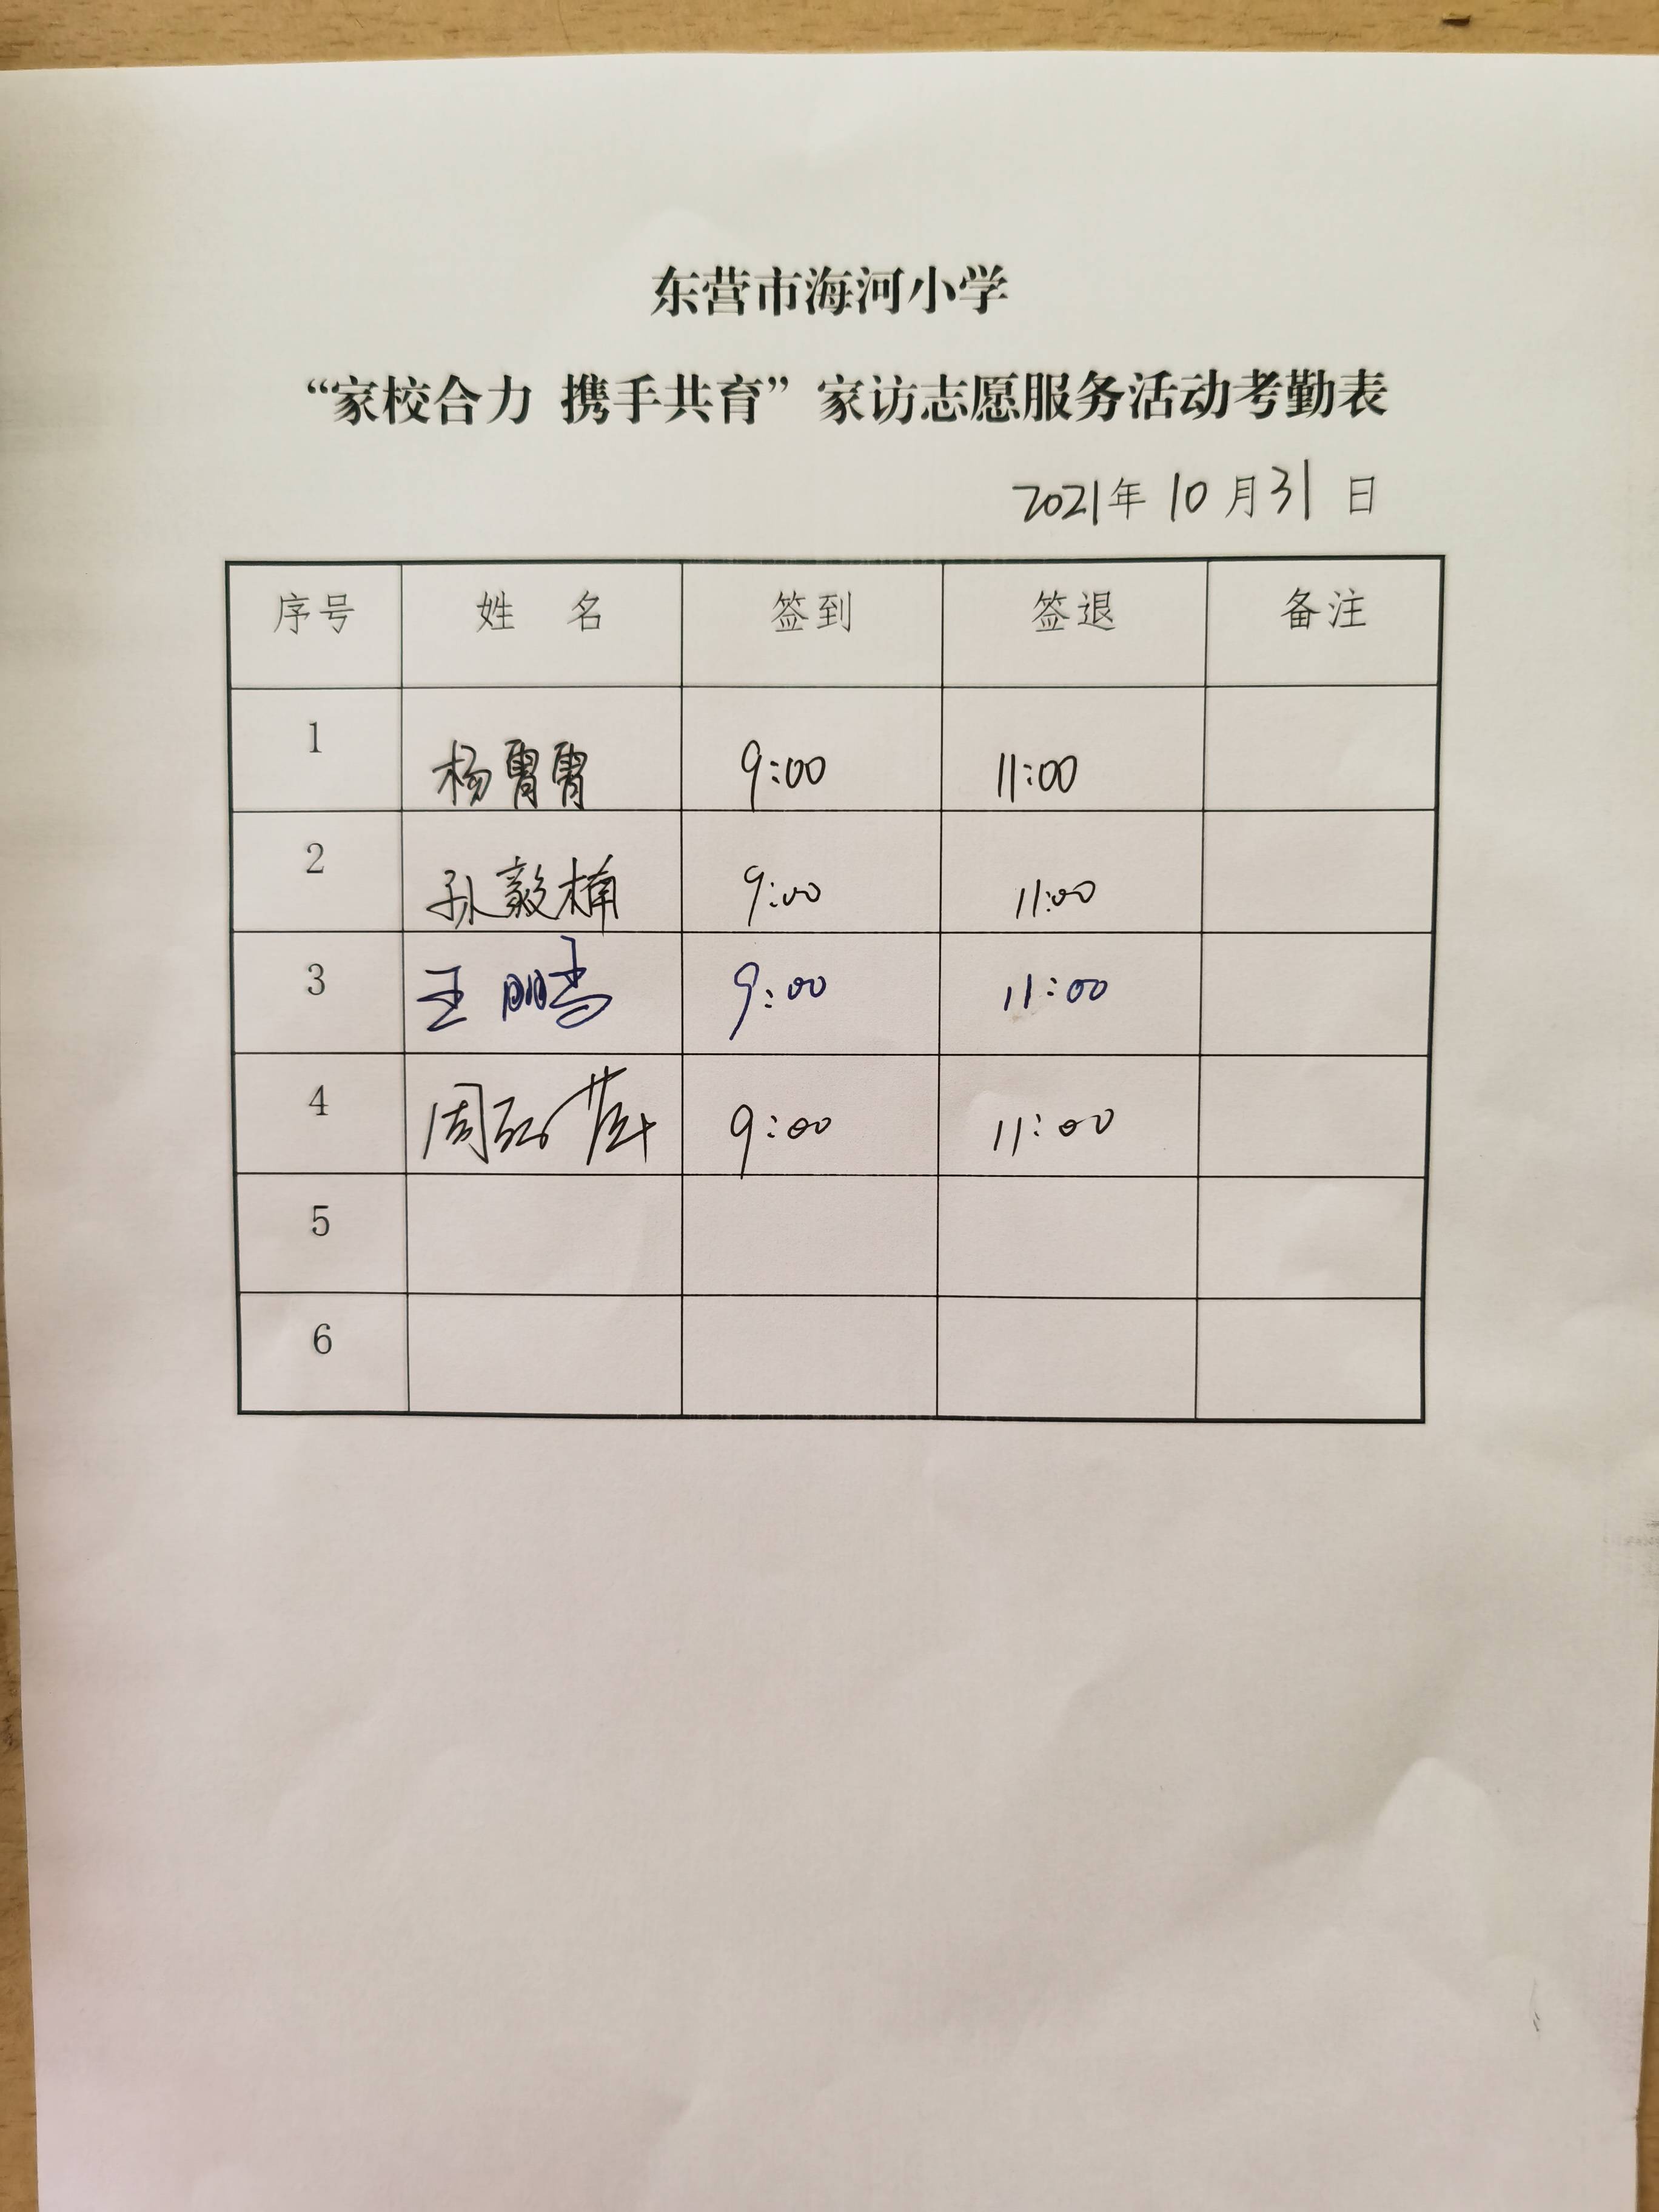 东营市海河小学
“家校合力 携手共育”家访志愿服务活动考勤表
2021年 10 月 31 日
序号 姓 名 签到 签退 备注
1 杨胃胃 9:00 11:00
2 孙毅楠 9:00 11:00
3 王鹏 9:00 11:00
4 周 9:00 11:00
5
6